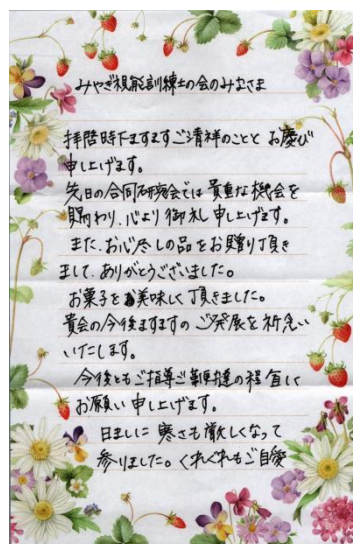 みやぎ視能訓練士の会のみなさま
拝啓時下ますますご清祥のことと お慶び
申し上げます。
先日の合同研究会では 貴重な機会を
賜わり、心より御礼 申し上げます。
また、お心尽しの品をお贈り頂き
まして、ありがとうございました。
お菓子を美味しく頂きました。
貴会の今後ますますの ご発展を祈念い
いたします。
今後ともご指導ご鞭撻の程 宜しく
お願い 申し上げます。
日ましに 寒さも厳しくなって
参りました。くれぐれもご自愛